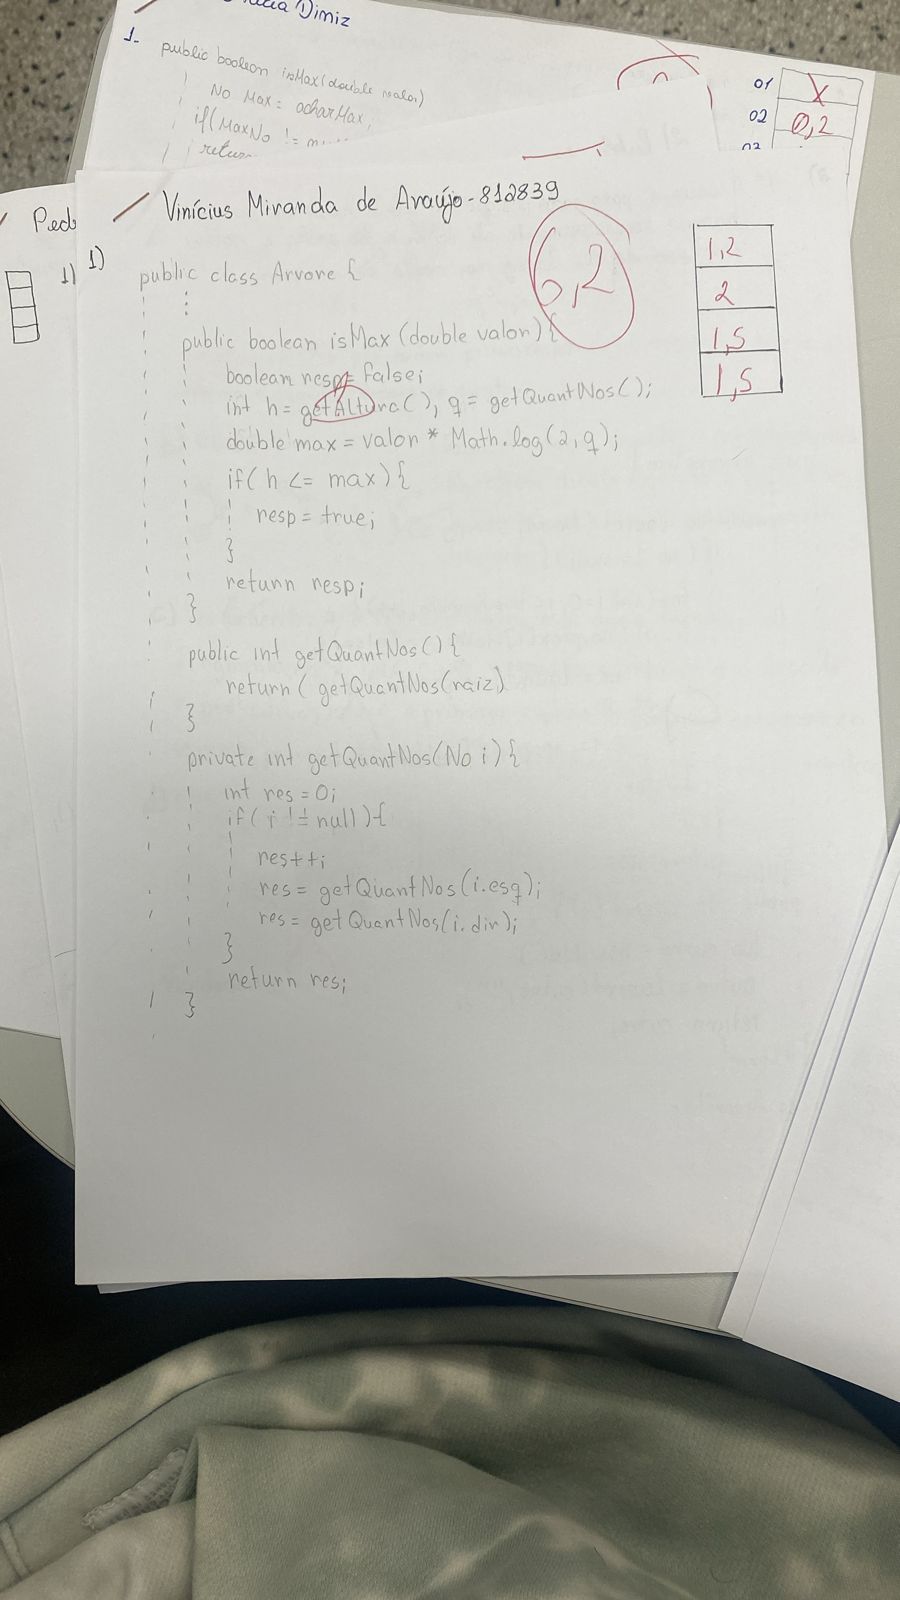 Dimiz
1-
public boolean isMax(double valor)
No Max = acharMax;
if(MaxNo != n.....
return
01 X
02 0,2
03
Ped
1)
Vinícius Miranda de Araújo - 812839
6,2
1,2
2
1,5
1,5
1)
public class Arvore {
⋮
public boolean isMax (double valor) {
boolean resp = false;
int h = getAltura(), q = getQuantNos();
double max = valor * Math.log(2,q);
if( h <= max) {
resp = true;
}
return resp;
}
public int getQuantNos() {
return ( getQuantNos(raiz)
}
private int getQuantNos(No i) {
int res = 0;
if( i != null ) {
res++;
res = getQuantNos(i.esq);
res = getQuantNos(i.dir);
}
return res;
}